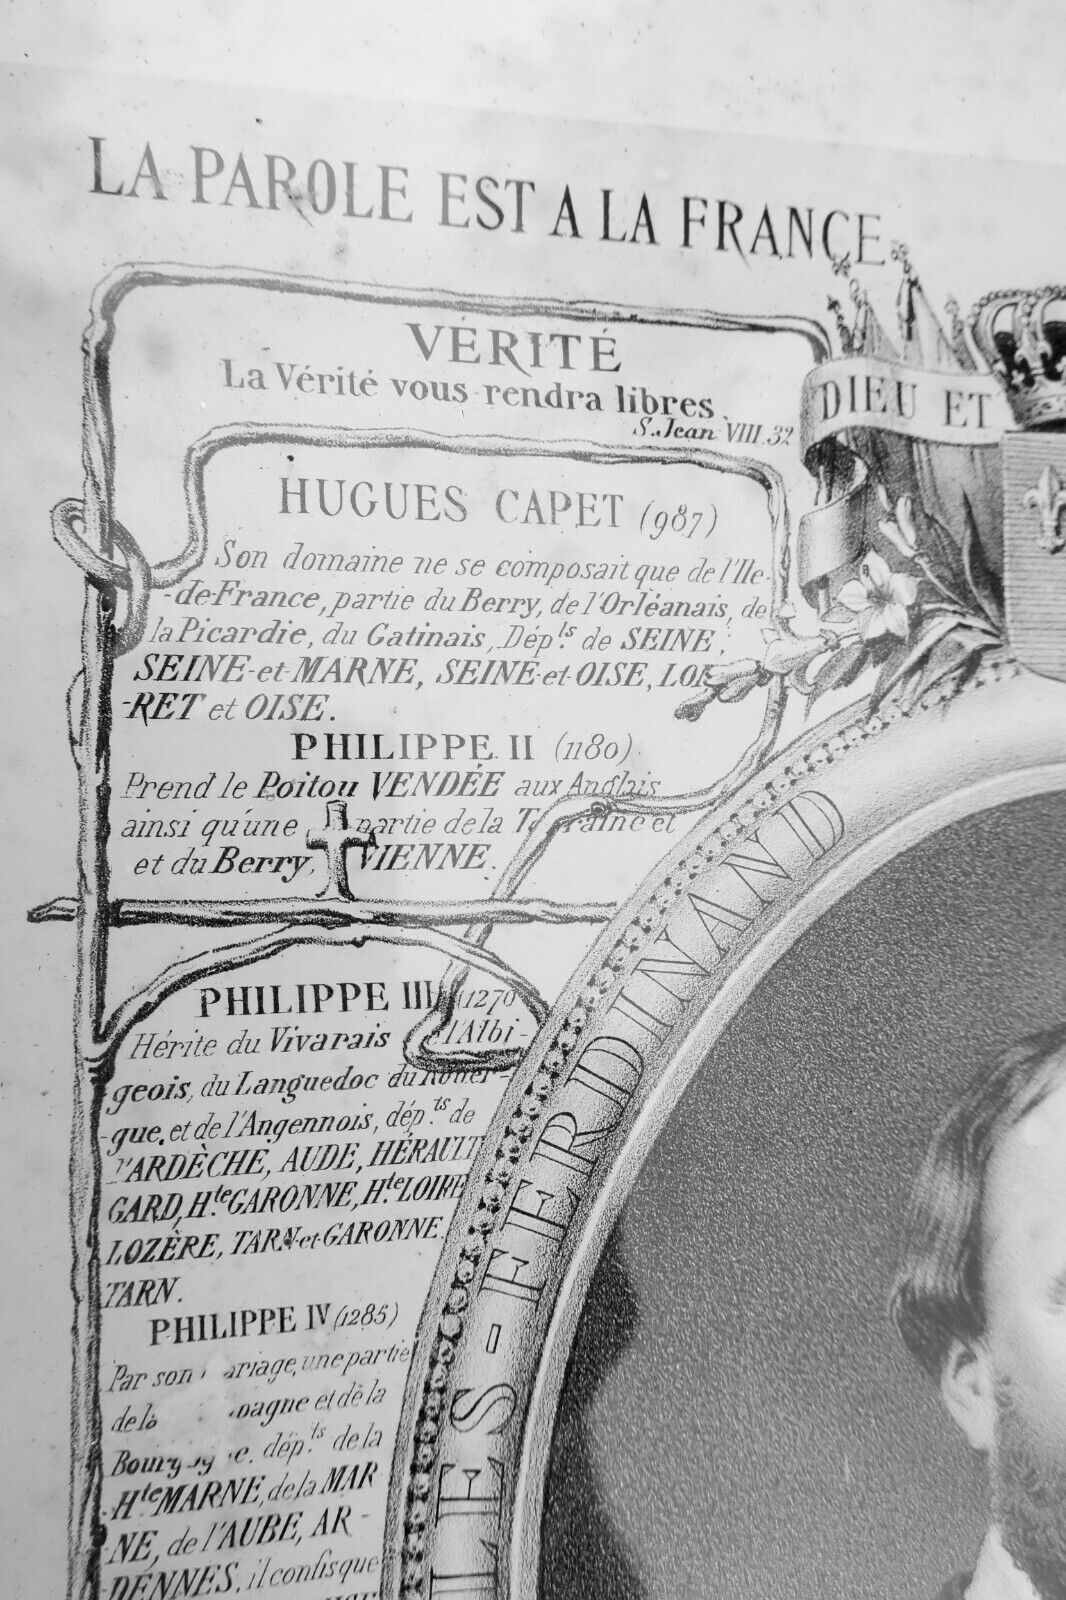 LA PAROLE EST A LA FRANCE
VÉRITÉ
La Vérité vous rendra libres
S. Jean VIII. 32
DIEU ET
HUGUES CAPET (987)
Son domaine ne se composait que de l'Ile-
-de-France, partie du Berry, de l'Orléanais, de
la Picardie, du Gatinais, Dépts. de SEINE,
SEINE-et-MARNE, SEINE-et-OISE, LOI
-RET et OISE.
PHILIPPE II (1180)
Prend le Poitou VENDÉE aux Anglais
ainsi qu'une partie de la et
et du Berry, VIENNE.
PHILIPPE III (1270
Hérite du Vivarais l'Albi-
geois, du Languedoc du
-que, et de l'Angennois, dép.ts de
l'ARDÈCHE, AUDE, HÉRAULT
GARD, Hte GARONNE, Hte LOIRE
LOZÈRE, TARN-et-GARONNE.
TARN.
PHILIPPE IV (1285)
Par son ariage, une partie
de la pagne et de la
dép.ts de la
-Hte MARNE, de la MAR
-NE, de l'AUBE, AR-
DENNES, il confisque
LES-FERDINAND